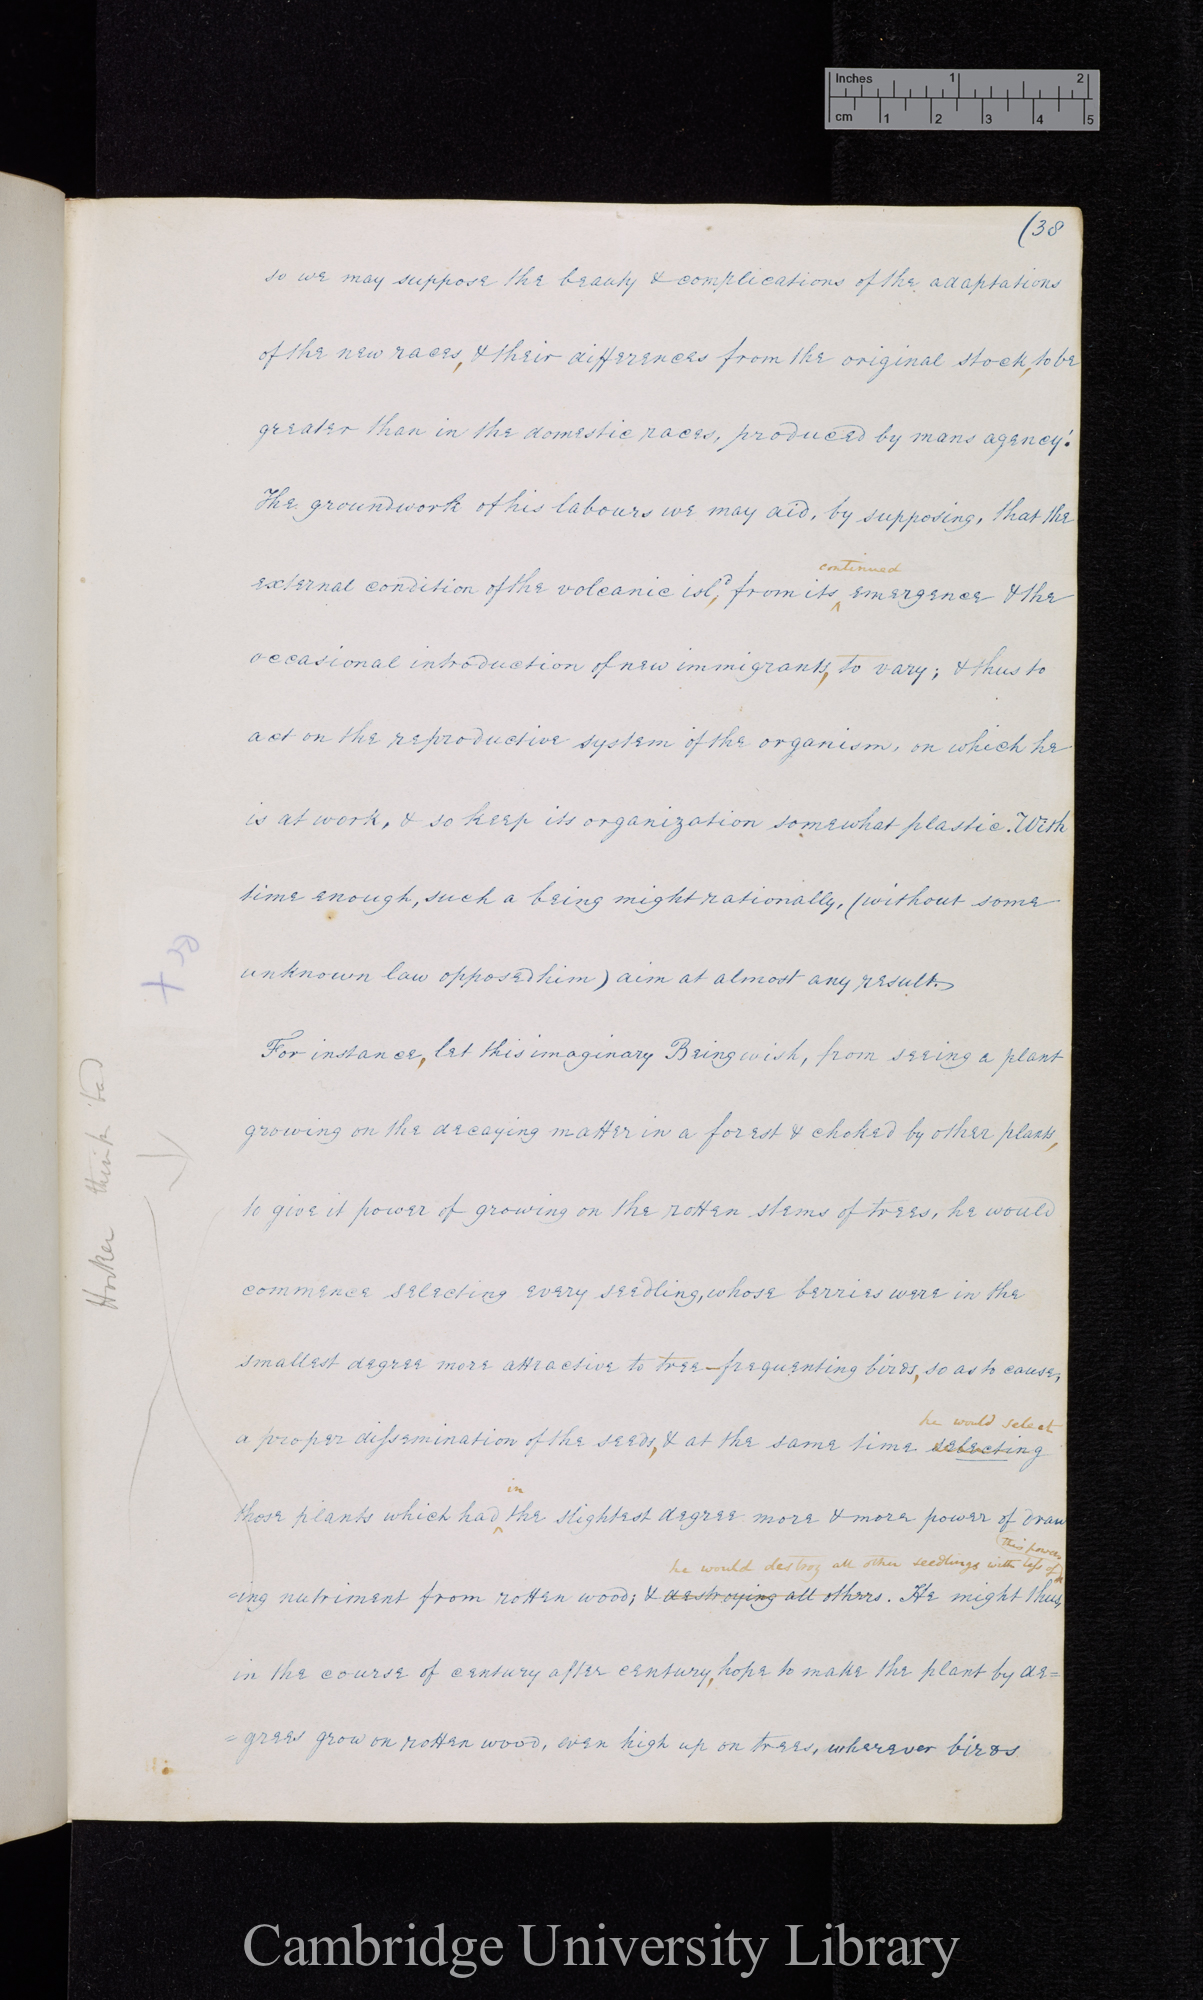 Inches 1 2
cm 1 2 3 4 5
(38
so we may suppose the beauty & complications of the adaptations
of the new races, & their differences from the original stock, to be
greater than in the domestic races, produced by mans agency.
The groundwork of his labours we may aid, by supposing, that the
continued
external condition of the volcanic isld, from its emergence & the
occasional introduction of new immigrants, to vary; & thus to
act on the reproductive system of the organism, on which he
is at work, & so keep its organization somewhat plastic. With
time enough, such a being might rationally, (without some
unknown law opposed him) aim at almost any result.
For instance, let this imaginary Being wish, from seeing a plant
growing on the decaying matter in a forest & choked by other plants,
to give it power of growing on the rotten stems of trees, he would
commence selecting every seedling, whose berries were in the
smallest degree more attractive to tree-frequenting birds, so as to cause,
he would select
a proper dissemination of the seeds, & at the same time selecting
in
those plants which had the slightest degree more & more power of draw
this power
he would destroy all other seedlings with less of
=ing nutriment from rotten wood; & destroying all others. He might thus,
in the course of century after century, hope to make the plant by de=
=grees grow on rotten wood, even high up on trees, wherever birds
Hooker think bad
Cambridge University Library